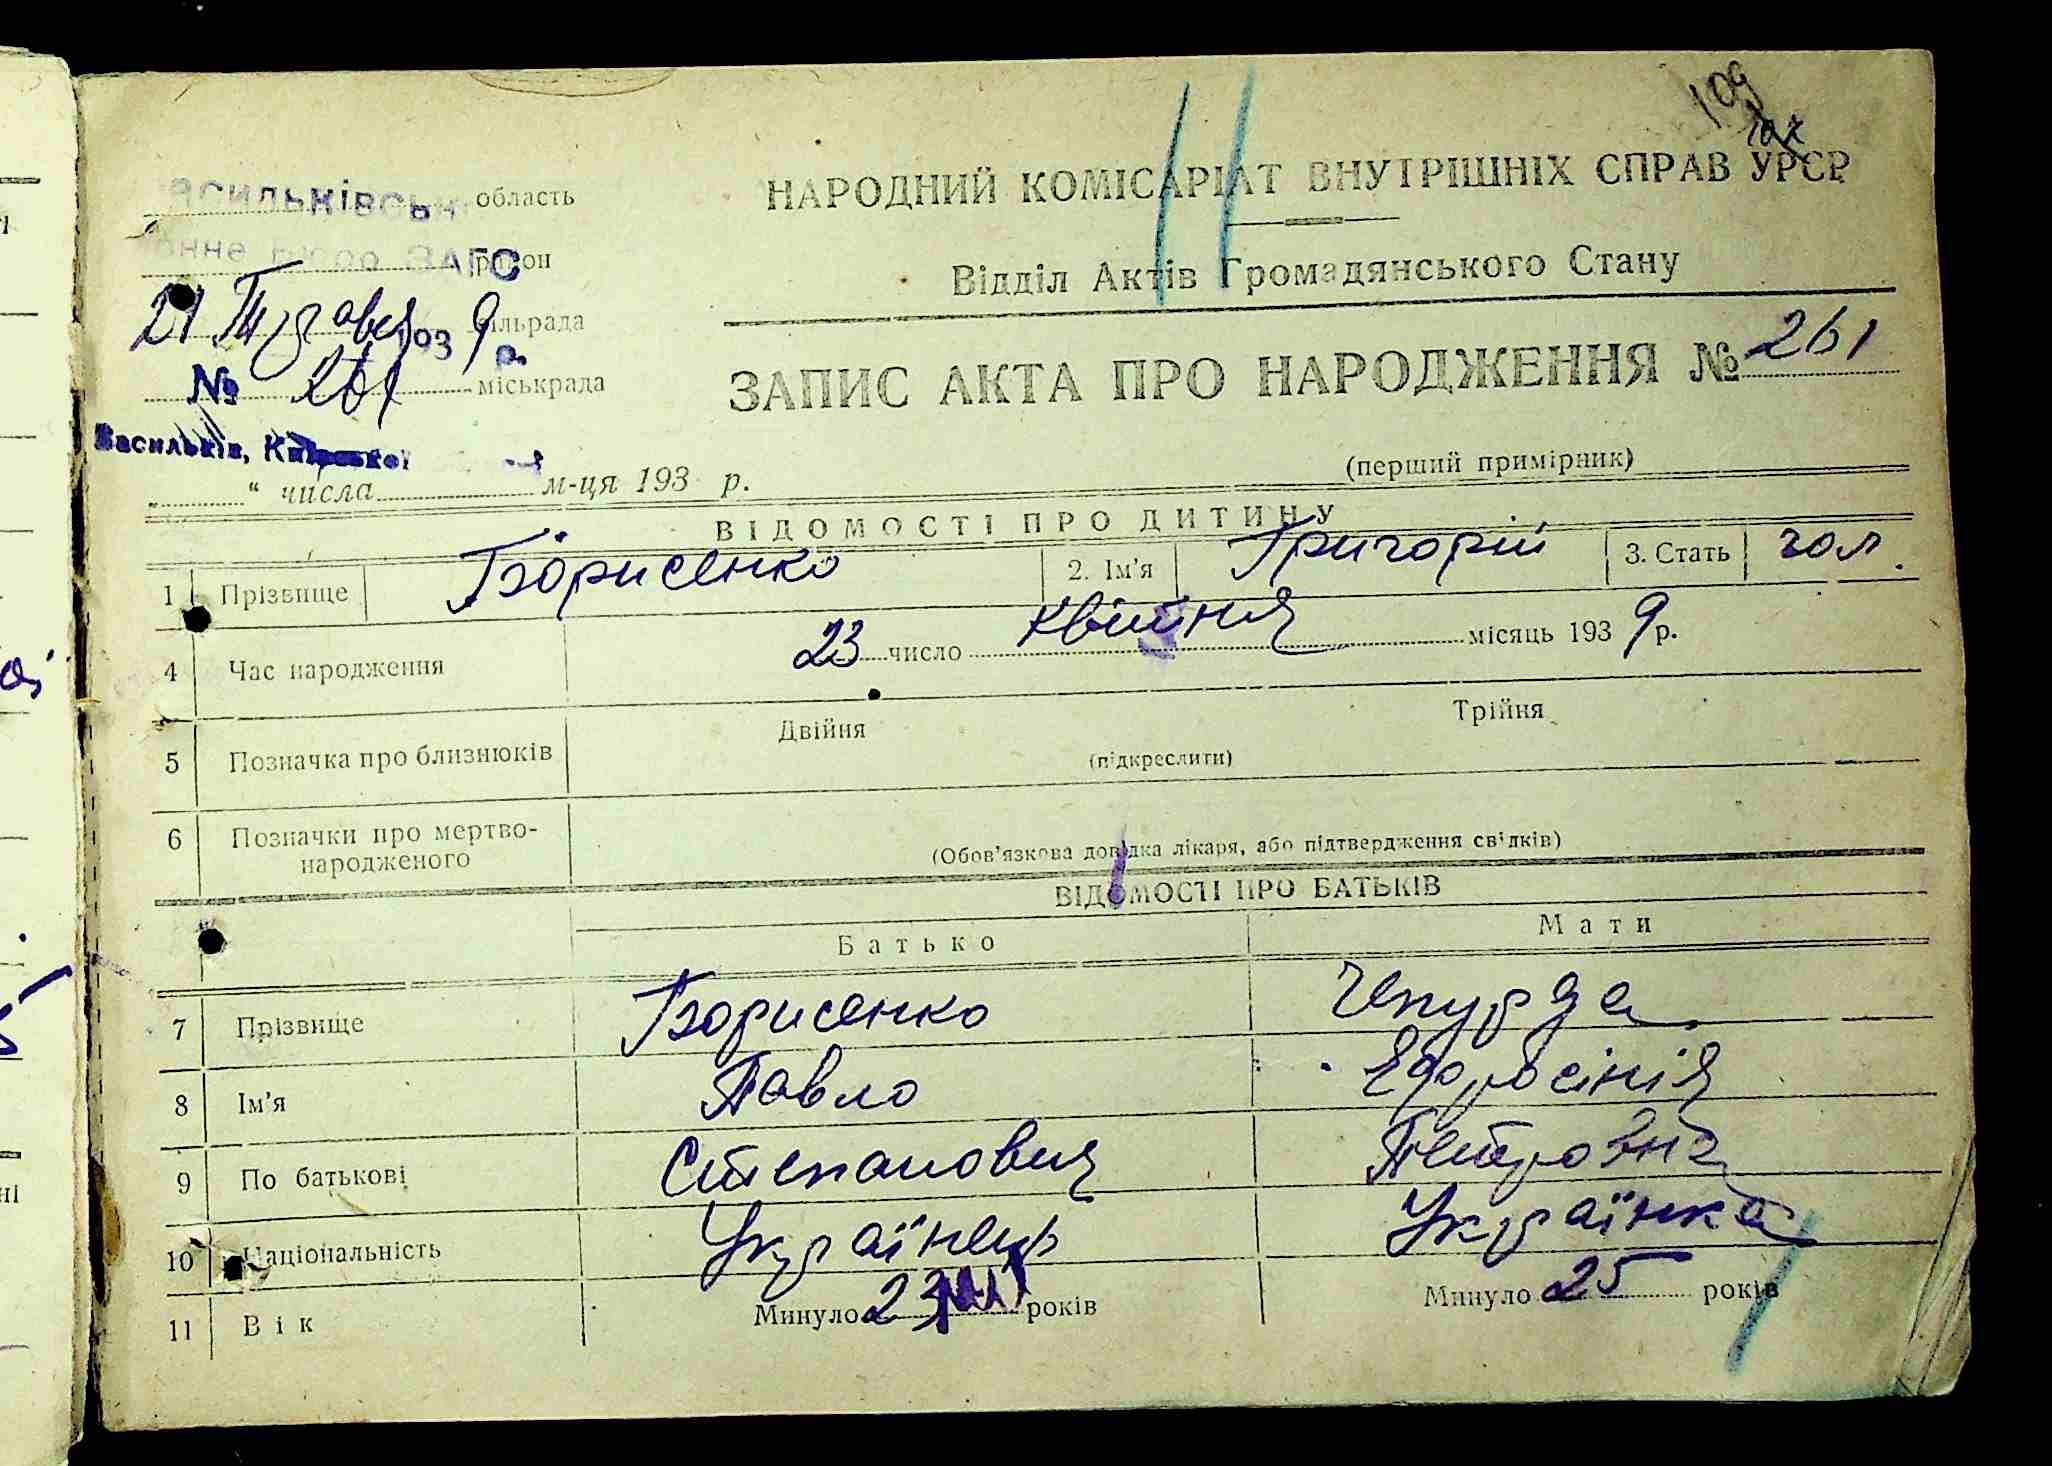 109
107
НАРОДНИЙ КОМІСАРІАТ ВНУТРІШНІХ СПРАВ УРСР
Відділ Актів Громадянського Стану
асильківськ область
нне бюро ЗАГС район
21 Травня 1939 р. сільрада
№ 261 міськрада
Васильків, Київської
„ “ числа м-ця 193 р.
ЗАПИС АКТА ПРО НАРОДЖЕННЯ № 261
(перший примірник)
ВІДОМОСТІ ПРО ДИТИНУ
1 Прізвище Борисенко 2. Ім'я Григорій 3. Стать чол.
4 Час народження 23 число квітня місяць 1939 р.
5 Позначка про близнюків Двійня Трійня
(підкреслити)
6 Позначки про мертво-
народженого
(Обов'язкова довідка лікаря, або підтвердження свідків)
ВІДОМОСТІ ПРО БАТЬКІВ
Батько Мати
7 Прізвище Борисенко Чепурда
8 Ім'я Павло Єфросінія
9 По батькові Степанович Петровна
10 Національність Українець Українка
11 Вік Минуло 23 років Минуло 25 років